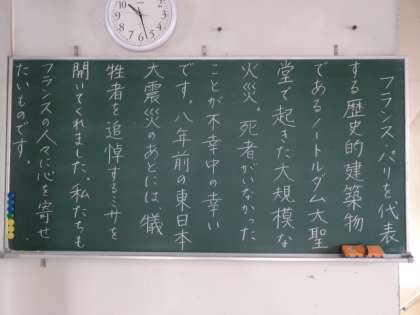 フランス・パリを代表
する歴史的建築物
であるノートルダム大聖
堂で起きた大規模な
火災。死者がいなかった
ことが不幸中の幸い
です。八年前の東日本
大震災のあとには犠
牲者を追悼するミサを
開いてくれました。私たちも
フランスの人々に心を寄せ
たいものです。